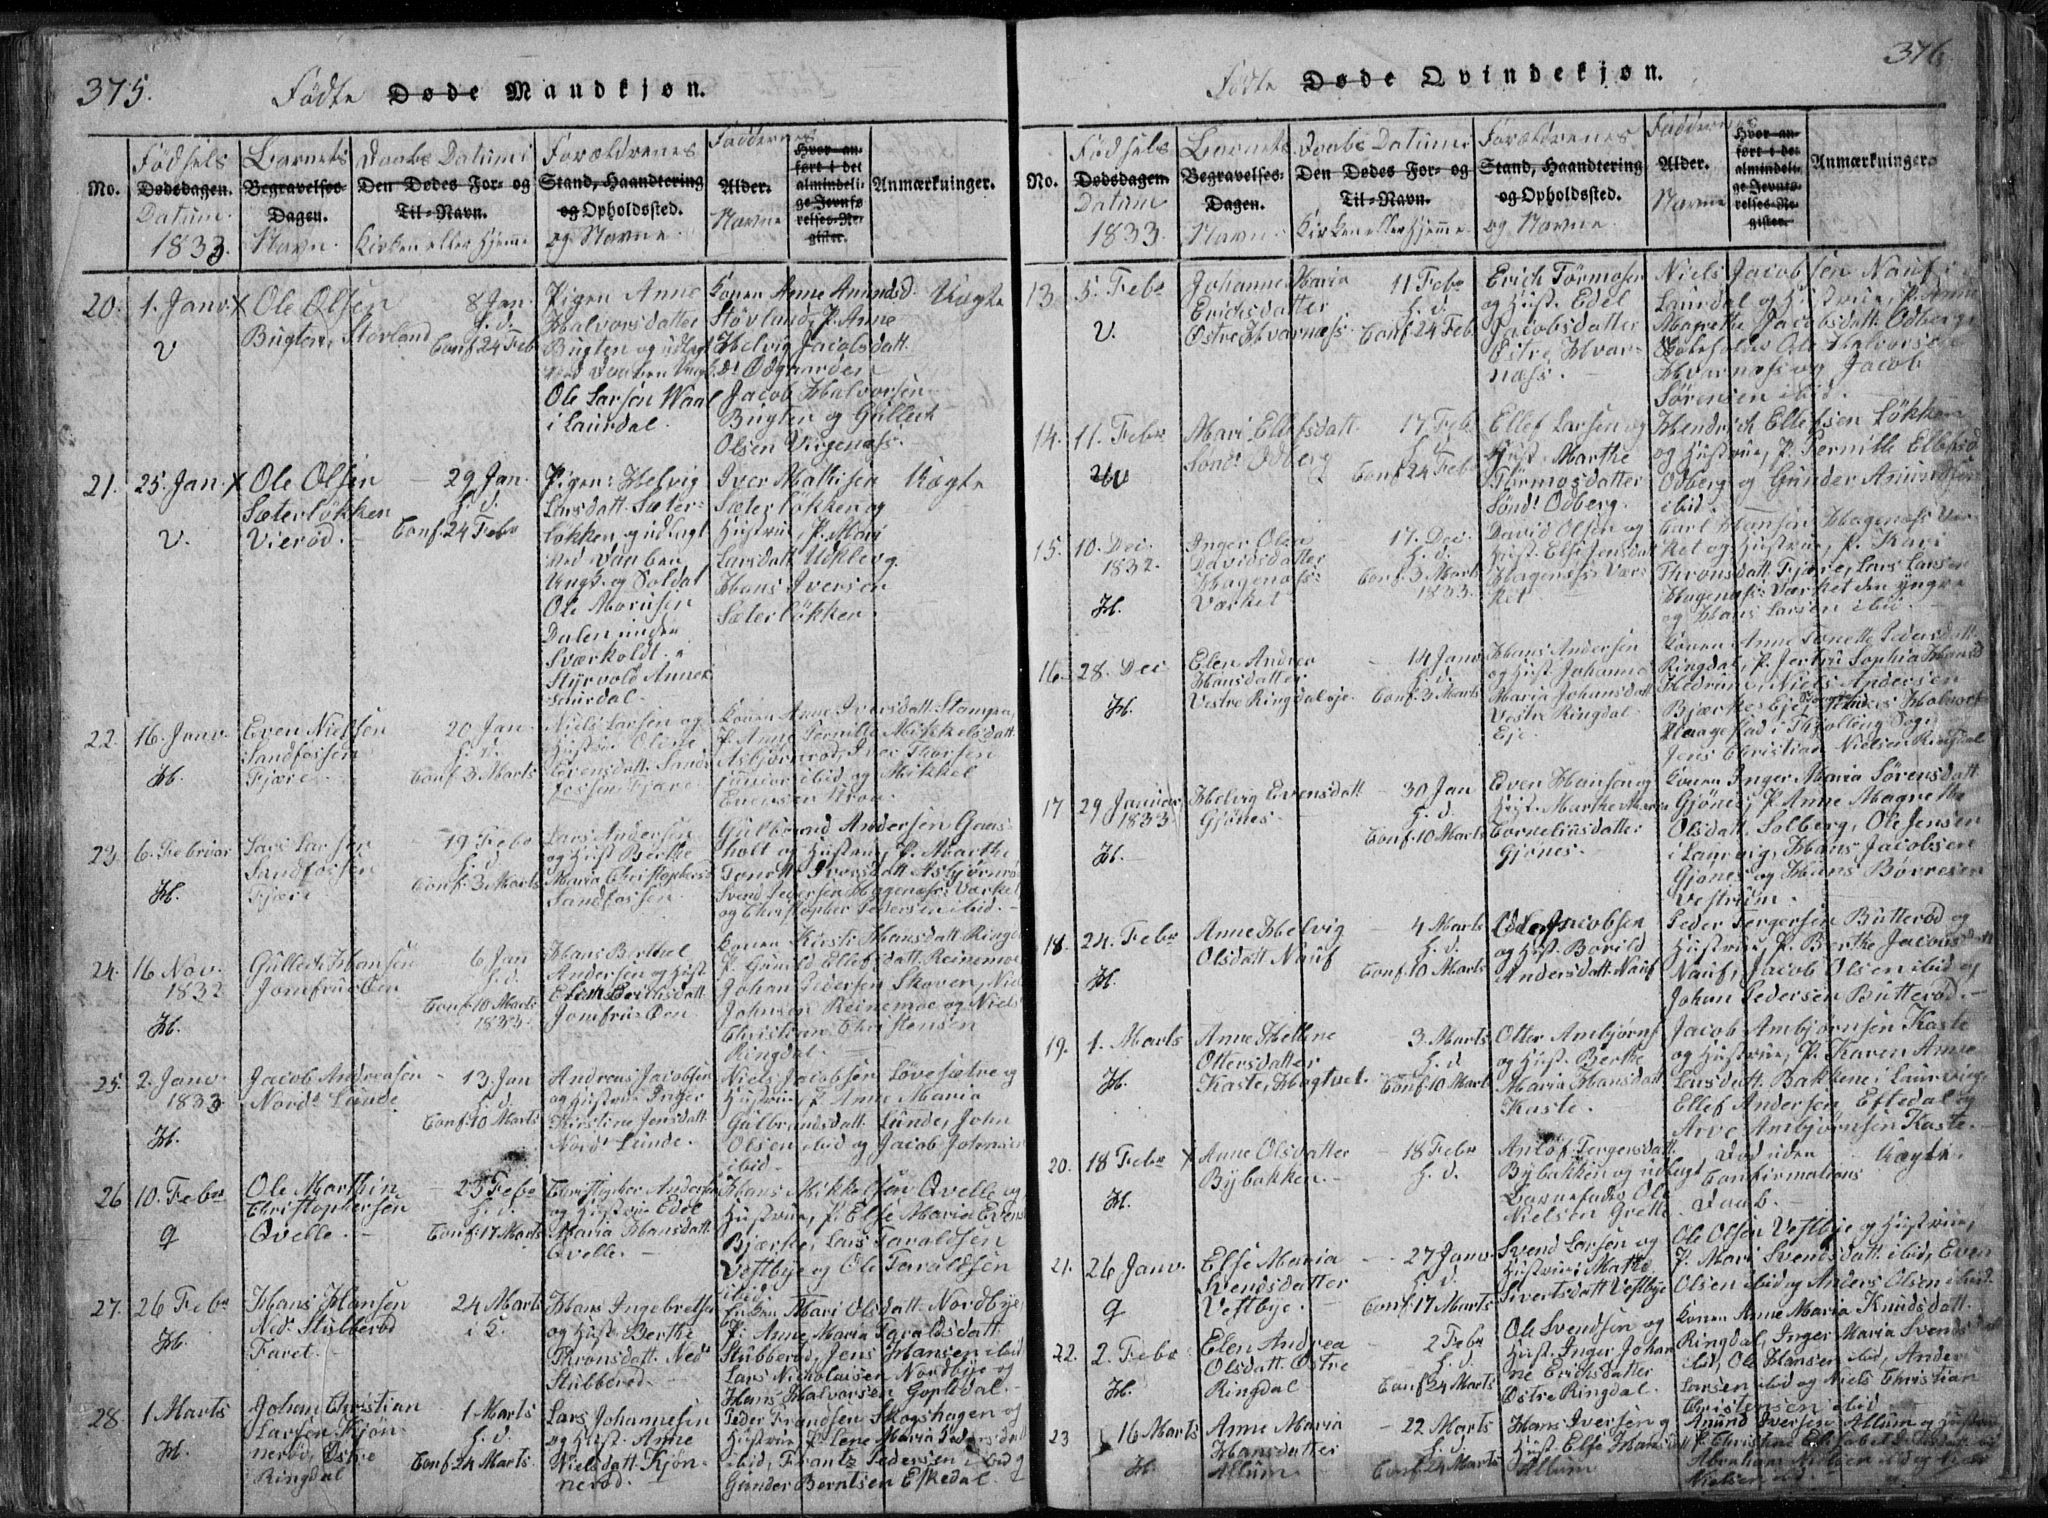 375.
Födte Døde Mandkjøn.
No.
Födsels
Dødsdagen.
Datum.
1833.
Barnets
Begravelses-
Dagen.
Navn.
Daabs Datum i
Den Dødes For- og
Til-Navn.
Kirken eller Hjemme
Forældrenes
Stand, Haandtering
og Opholdssted.
og Navne.
Faddernes
Alder.
Navne
Hvor an-
ført i det
almindeli-
ge Jevnfø-
relses-Re-
gister.
Anmærkninger.
20. 1. Janr. x
V
Ole Olsen
Bugten, Storland
8 Jan.
h. d.
Conf 24 Feb
Pigen Anne
Halvorsdatter
Bugten og udlagt
Ole Larsen Waal
i Laurdal.
Konen Anne Amundsd.
Stövland, P. Anne
Helvig Jacobsdatt.
Odgaarden
Jacob Halvorsen
Bugten og Gullech
Olsen Virgenæss.
Uægte
21. 25. Jan. x
V.
Ole Olsen
Sæterløkken
Vierød.
29 Jan.
h. d.
Conf. 24 Febr
Pigen: Helvig
Larsdatt. Sæter-
løkken og udlagt
ved Daaben
Ungk. og Soldat
Ole Morusen
Dalen under
Sværholdt
Styrvold Annex
Laurdal.
Iver Mathisen
Sæterløkken og
Hustrue, P. Mari
Larsdatt. Udkleberg
Hans Iversen
Sæterløkken.
Uægte
22. 16. Janv.
H.
Even Nielsen
Sandfossen
Fjære.
20 Jan.
h. d.
Conf. 3 Marts
Niels Larsen og
Hustrue Oline
Sörensdatt. Sand-
fossen Fjære.
Konen Anne Iversdatt. Stampa,
P. Anne Pernille Mikkelsdatt
Asbjörnrød, Iver Thorsen
junior ibid og Mikkel
Evensen Kroa.
23. 6. Februar
H.
Lars Larsen
Sandfossen
Fjære
19 Febr
h. d.
Conf. 3 Marts
Lars Andersen
og Hust Berthe
Maria Christophersd
Sandfossen.
Gulbrand Andersen Gaas-
holt og Hustrue, P. Marthe
Tonette Iversdatt Asbjörnrø
Svend Pedersen Hagenæss: Værket
og Christopher Pedersen ibid.
24. 16 Nov.
1832
H.
Gullech Hansen
Jomfrueöen
6 Jan
h. d.
Conf. 10 Marts
1833.
Hans Berthel
Andersen og Hust
Elen Erichsdatt.
Jomfru-Öen
Konen Kirsti Hansdatt. Ringd
P. Gunild Ellefsdatt. Reinemoe
Johan Pedersen Skoven, Niels
Johnsen Reinemoe og Niels
Christian Christensen
Ringdal.
25. 2. Janv.
1833
H.
Jacob Andreasen
Nord: Lunde
13. Jan
h. d.
Conf. 10 Marts
Andreas Jacobsen
og Hustrue Inger
Kirstine Jensdatt.
Nord: Lunde.
Niels Jacobsen Lövesætre og
Hustrue, P. Anne Maria
Gulbrandsdatt. Lunde, John
Olsen ibid og Jacob Johnsen
ibid.
26 10. Febr
q
Ole Marthin
Christophersen
Qvelle.
23 Febr
h. d.
Conf. 17 Marts
Christopher Andersen
og Hustrue Edel
Maria Hansdatt.
Qvelle.
Hans Mikkelsen Qvelle og
Hustrue, P. Else Maria Evens
Bjærke, Lars Taraldsen
Vestbye og Ole Taraldsen
ibid.
27. 26 Febr
H.
Hans Hansen
Ned: Stubberød
Faret.
24 Marts
i K.
Hans Ingebretsen
og Hust Berthe
Thronsdatt. Ned:
Stubberød.
Konen Mari Olsdatt. Nordbye,
P. Anne Maria Taraldsdatt.
Stubberød, Jens Hansen ibid
Lars Nicholaisen Nordbye og
Hans Halvorsen Gopledal.
28. 1 Marts
H.
Johan Christian
Larsen Kjön-
nerød, Östre
Ringdal
1 Marts
h. d.
Conf 24 Marts.
Lars Johannesen
og Hust. Anne
Nielsdatt. Kjön-
nerød.
Peder Frandsen Skogshagen og
Hustrue, P. Lene Maria Pedersdatt
ibid, Frantz Pedersen ibid og
Gunder Berntsen Eskedal
376
Födte Døde Qvindekjøn.
No.
Födsels
Dødsdagen.
Datum
1833.
Barnets
Begravelses-
Dagen.
Navn.
Daabs Datum i
Den Dødes For- og
Til-Navn.
Kirken eller Hjemme.
Forældrenes
Stand, Haandtering
og Opholdssted.
og Navne.
Faddernes
Alder.
Navne
Hvor an-
ført i det
almindeli-
ge Jevnfø-
relses-Re-
gister.
Anmærkninger.
13 5. Febr
V.
Johanne Maria
Erichsdatter
Östre Hvarnæss
11 Febr
h. d.
Conf 24 Feb
Erich Törmosen
og Hust. Edel
Jacobsdatter
Östre Hvar-
næss.
Niels Jacobsen Nauf i
Laurdal og Hustrue, P. Anne
Magrethe Jacobsdatt. Odberg,
Ole Halvorsen
Hvarnæss og Jacob
Sörensen ibid.
14. 11. Febr
V
Mari Ellefsdatt.
Sönd: Odberg
17 Feb
h. d.
Conf 24 Feb
Ellef Larsen og
Hust. Marthe
Törmosdatter
Sönd: Odberg.
Hendrich Ellefsen Løkken
og Hustrue, P. Pernille Ellefsd
Odberg og Gunder Amundsen
ibid.
15. 10. Dec.
1832.
H.
Inger Olea
Davidsdatter
Hagenæss:
Værket
17. Dec.
h. d.
Conf. 3 Marts
1833.
David Olsen og
Hust. Else Jensdat
Hagenæss: Vær-
ket.
Carl Hansen Hagenæss Vær-
ket og Hustrue, P. Kari
Thronsdatt Fjære, Lars Larsen
Hagenæss: Værket den yngre
og Hans Larsen ibid.
16. 28. Dec
H.
Elen Andrea
Hansdatter
Vestre Ringdalseje.
14 Janv
h. d.
Conf. 3 Marts
Hans Andersen
og Hust. Johanne
Maria Johansdatt
Vestre Ringdal
Eje.
Konen Anne Tonette Pedersdatt.
Ringdal, P. Jertru Sophia Hansd
Hedrum, Niels Andersen
Bjærke Eje, Halvors
Haagestad i Thjölling Sogn
Jens Christian Nielsen Ringdal
17 29 Januar
1833.
H.
Helvig Evensdatt.
Gjönes.
30 Jan
Conf. 10 Marts
Even Hansen og
Hust. Marthe Maria
Corneliusdatter
Gjönes.
Konen Inger Maria Sörensdatt.
Gjönes, P. Anne Magrethe
Olsdatt. Solberg, Ole Jensen
i Laurvig, Hans Jacobsen
Gjönes og Hans Börresen
Vestrum.
18. 24. Febr
H.
Anne Helvig
Olsdatt Nauf
4 Marts
h. d.
Conf 10 Marts
Jacobsen
og Hust. Borild
Andersdatt. Nauf
Peder Tergersen Butterød og
Hustrue P. Berthe Jacobsdatt
Nauf, Jacob Olsen ibid og
Johan Pedersen Butterød.
19. 1. Marts
H.
Anne Helene
Ottersdatter
Kaste, Hogtvet.
3 Marts
h. d
Conf 10 Marts
Otter Ambjörns
og Hust. Berthe
Maria Hansdatt
Kaste.
Jacob Ambjörnsen Kaste
og Hustrue, P. Karen Anne
Larsdatt. Bakkene i Laurvig,
Ellef Andersen Eftedal og
Arve Ambjörnsen Kaste.
20. 18 Febr x
H.
Anne Olsdatter
Bybakken.
18 Febr
h. d.
Anlöf Tergersdatt.
Bybakken og udlagt
Barnefader Ole
Nielsen Grette.
Död uden
Confirmations
Daab.
Uægte
21. 26 Janv.
q
Else Maria
Svendsdatter
Vestbye.
27 Janv
h. d.
Conf. 17 Marts
Svend Larsen og
Hustrue Mathe
Sivertsdatt Vestbye
Ole Olsen Vestbye og Hustrue,
P. Mari Svendsdatt. ibid, Even
Olsen ibid og Anders Olsen ibid.
22. 2. Febr
H.
Elen Andrea
Olsdatt. Östre
Ringdal
2 Febr
h. d.
Conf 24 Marts
Ole Svendsen og
Hust. Inger Johan
ne Erichsdatter
Östre Ringdal.
Konen Anne Maria Knudsdatt.
Ringdal, Inger Maria Svends
ibid, Ole Hansen ibid, Anders
Larsen ibid og Niels Christian
Christensen ibid
23 16 Marts
H.
Anne Maria
Hansdatter
Allum
22 Marts
h. d.
Conf 24 Marts
Hans Iversen og
Hust. Else Hansd
Allum
Amund Iversen Allum og Hustrue
P. Christine Elisabeth
Abraham Nielsen ibid og
Nielsen ibid.